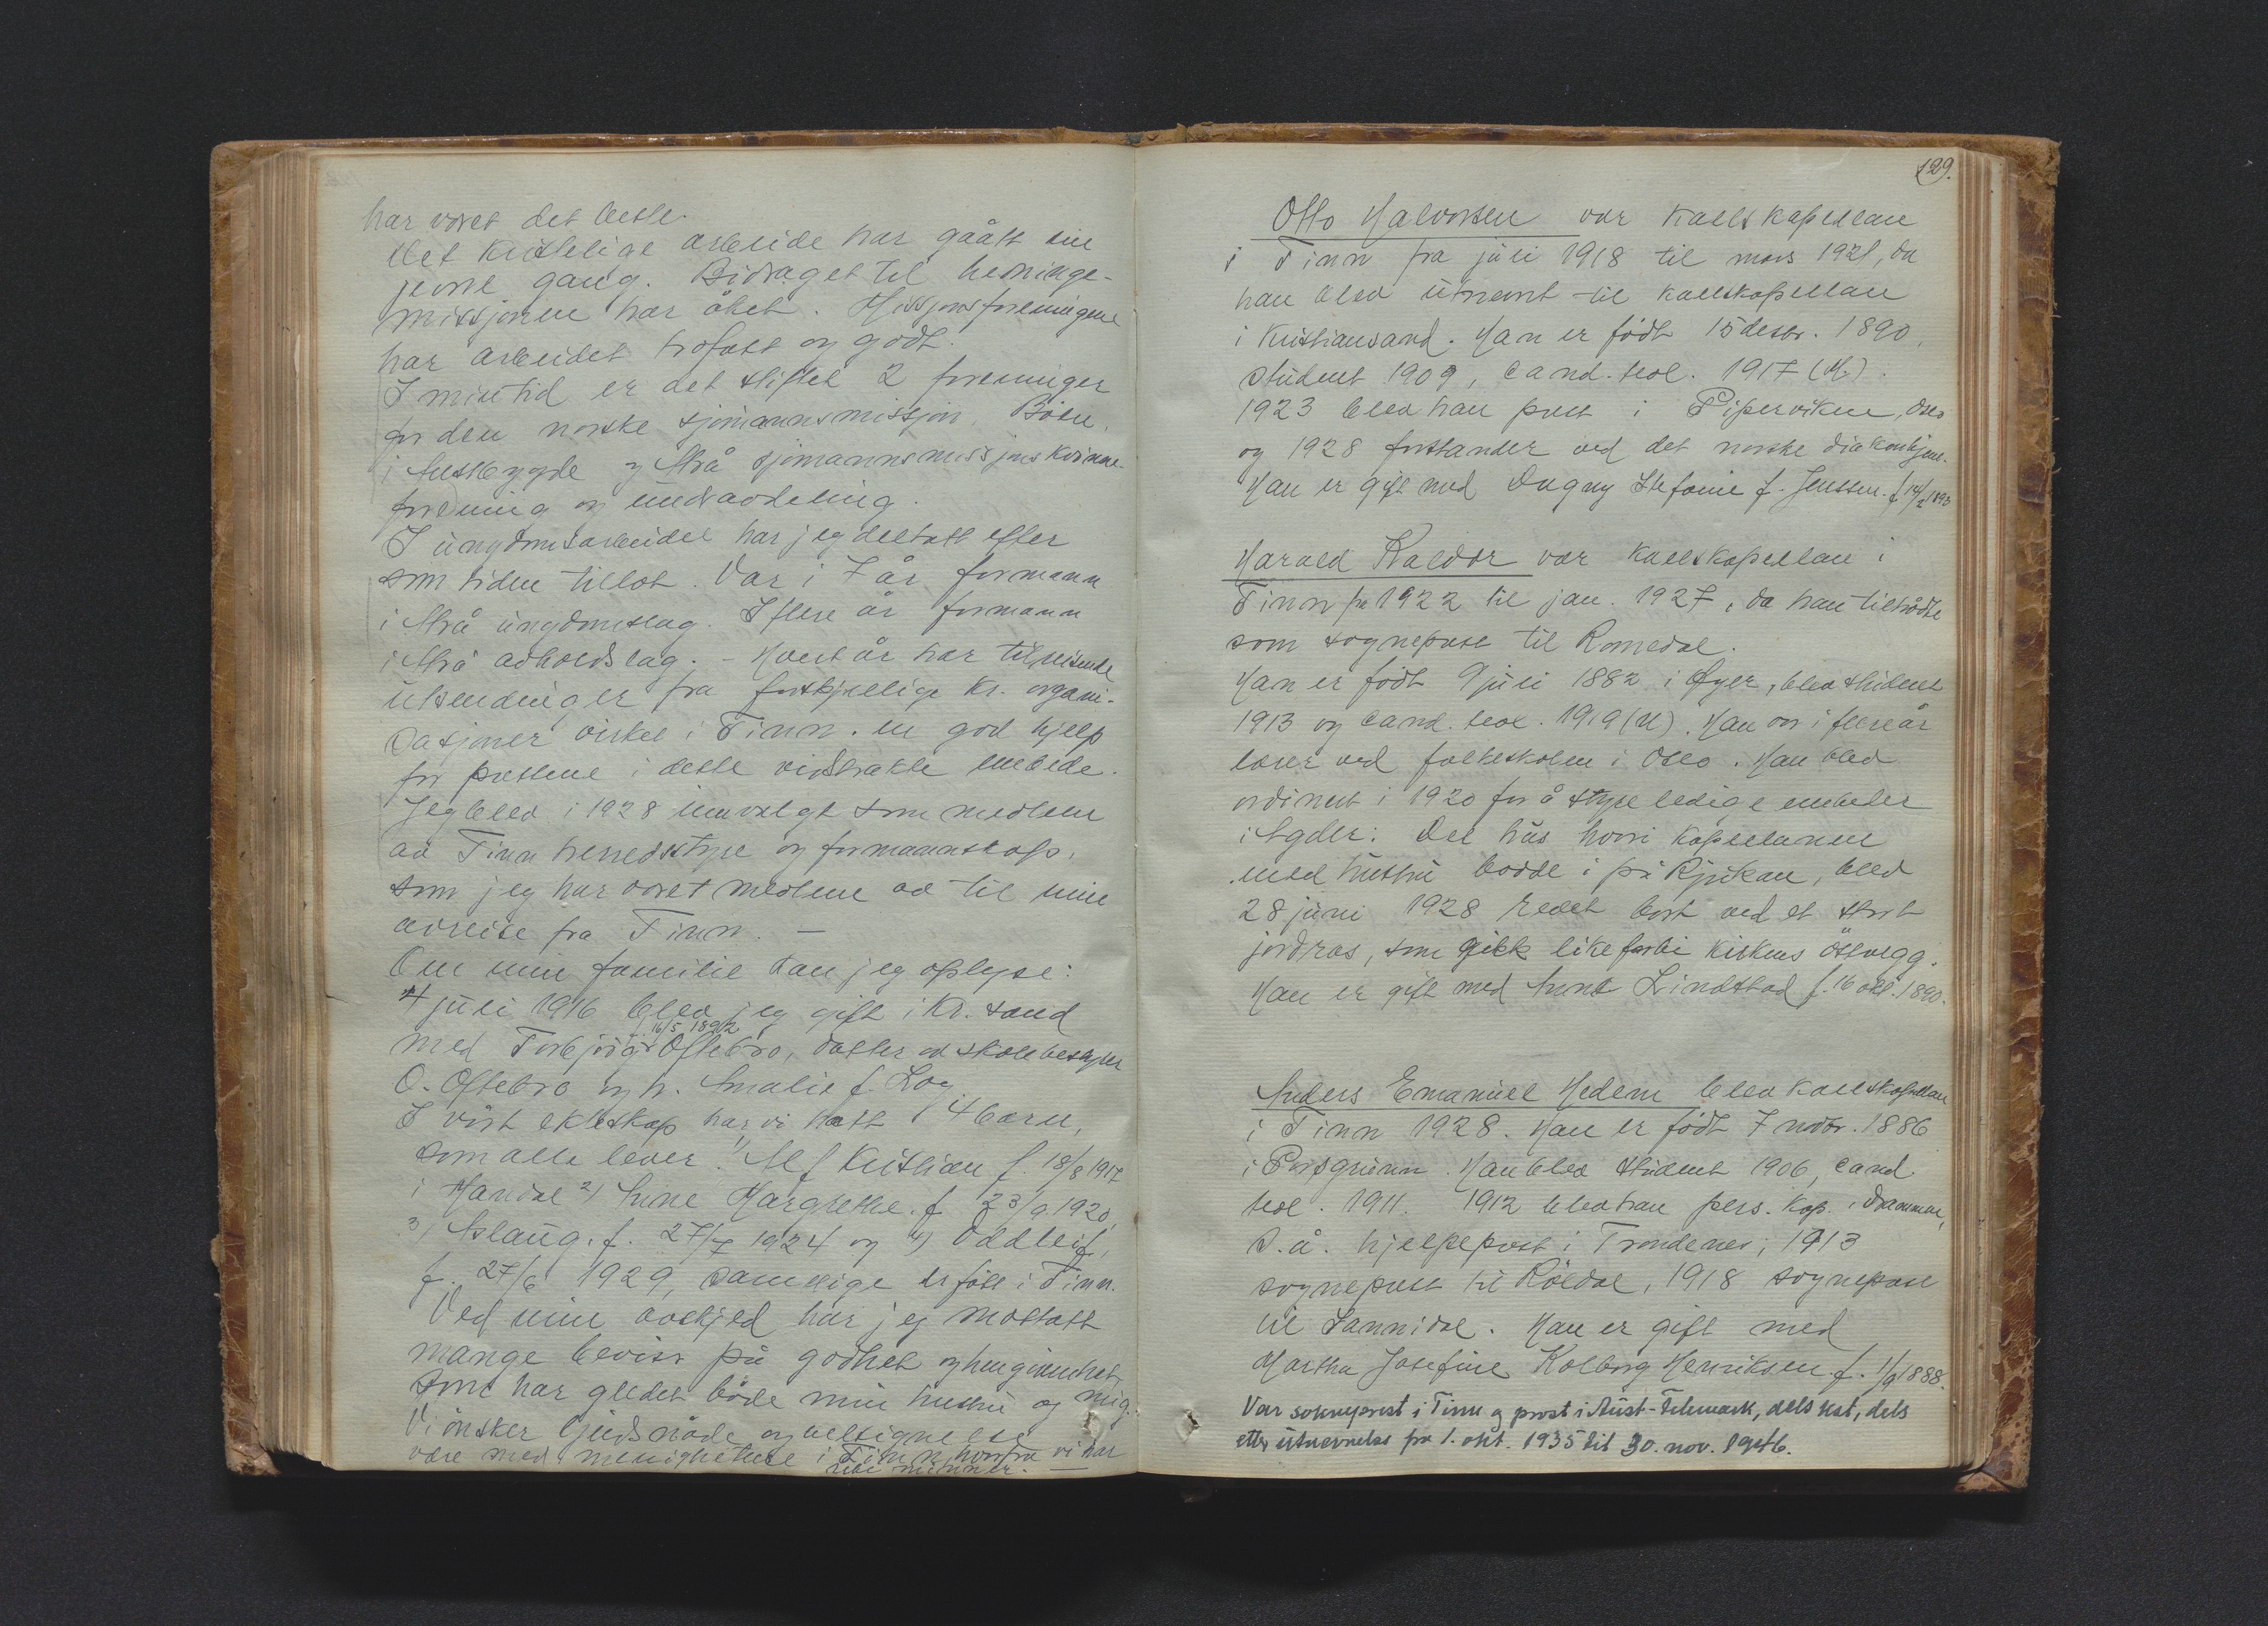 har været det beste.
Det kristelige arbeide har gått sin
jevne gang. Bidraget til hedninge-
misjonen har øket. Misjonsforeningene
har arbeidet trofast og godt.
I min tid er det stiftet 2 foreninger
for den norske sjømannsmissjon, Bøen,
i Austbygde og Mrå sjømannsmissjons kvinne-
forening og underavdeling.
I ungdomsarbeidet har jeg deltatt efter
som tiden tillot. Var i 7 år formann
i Mrå ungdomslag. I flere år formann
i Mrå avholdslag. - Hvert år har tilreisende
utsendinger fra forskjellige kr. organi-
sasjoner virket i Tinn. en god hjelp
for prestene i dette vidstrakte embede.
Jeg blev i 1928 innvalgt som medlem
av Tinn herredsstyre og formannskap,
som jeg har været medlem av til min
avreise fra Tinn. —
Om min familie kan jeg oplyse:
4 juli 1916 blev jeg gift i Kr. sand
med Torbjørg f. 16/5 1892 Oftebro, datter av skolebestyrer
O. Oftebro og h. Amalie f. Log
I vårt ekteskap har vi hatt 4 barn,
som alle lever. 1) Alf Kristian f. 18/8 1917
i Mandal 2) Anne Margrethe. f 23/9 1920,
3) Aslaug. f. 27/7 1924 og 4) Oddleif,
f. 27/6 1929, samtlige er født i Tinn.
Ved min avskjed har jeg mottatt
mange beviser på godhet og hengivenhet,
som har gledet både min hustru og mig.
Vi ønsker Guds nåde og velsignelse
være med menighetene i Tinn, hvorfra vi har
lise minner. —
129.
Otto Halvorsen var kallskapellan
i Tinn fra juli 1918 til mars 1921, da
han blev utnevnt til kallskapellan
i Kristiansand. Han er født 15 desbr. 1890,
student 1909, cand. teol. 1917 (M.).
1923 blev han prest i Pipervikens, Oslo
og 1928 forstander ved det norske diakonhjem.
Han er gift med Dagny Stefanie f. Jenssen. f 14/2 1893
Harald Kaldor var kallskapellan i
Tinn fra 1922 til jan. 1927, da han tiltrådte
som sogneprest til Romedal.
Han er født 9 juli 1882 i Øyer, blev student
1913 og cand. teol. 1919 (U). Han var i flere år
lærer ved folkeskolen i Oslo. Han blev
ordinert i 1920 for å styre ledige embeder
i Agder. Det hus hvori kapellanen
med hustru bodde i på Rjukan, blev
28 juni 1928 revet bort ved et stort
jordras, som gikk like forbi kirkens østvegg.
Han er gift med Anna Lindstad f. 16 okt. 1890.
Anders Emanuel Hedem blev kallskapellan
i Tinn 1928. Han er født 7 novbr. 1886
i Porsgrunn. Han blev student 1906, cand
teol. 1911. 1912 blev han pers. kap. i Drammen,
s. å. hjelpeprest i Trondenes; 1913
sogneprest til Røldal, 1918 sogneprest
til Sannidal. Han er gift med
Martha Josefine Kolborg Henriksen f. 1/9 1888.
Var sokneprest i Tinn og prost i Aust-Telemark, dels kst, dels
etter utnevnelse fra 1. okt. 1935 til 30. nov. 1946.